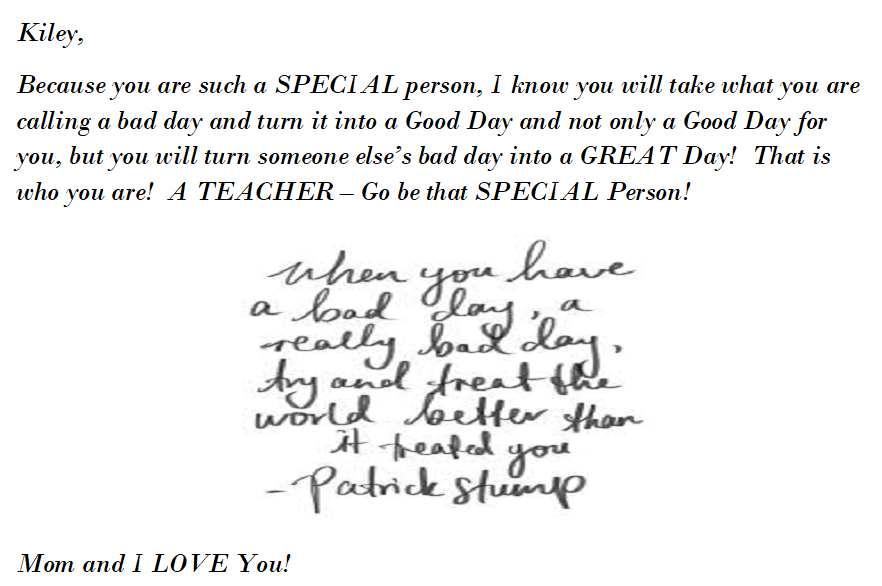 Kiley,
Because you are such a SPECIAL person, I know you will take what you are
calling a bad day and turn it into a Good Day and not only a Good Day for
you, but you will turn someone else’s bad day into a GREAT Day!  That is
who you are!  A TEACHER – Go be that SPECIAL Person!
when you have
a bad day, a
really bad day,
try and treat the
world better than
it treated you
- Patrick Stump
Mom and I LOVE You!